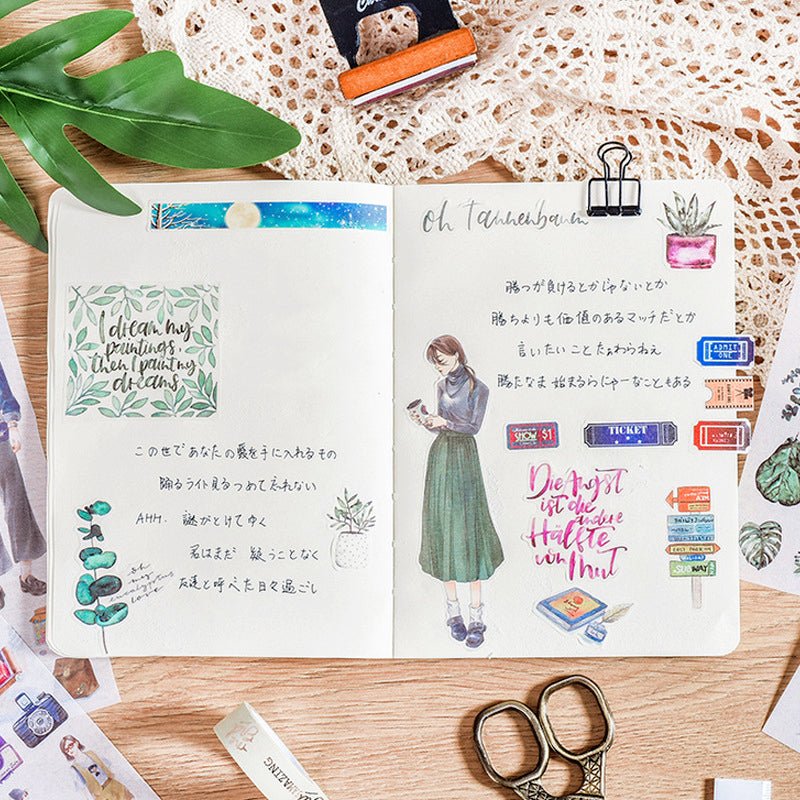 I dream my
paintings,
then I paint my
dreams
この世であなたの愛を手に入れるもの
踊るライト見るつめて忘れない
AHH. 謎がとけてゆく
君はまだ 疑うことなく
友達と呼べた日々過ごし
oh
my
eucalyptus
love
oh Tannenbaum
勝つが負けるとかじゃないとか
勝ちよりも価値のあるマッチだとか
言いたいことたぁわらねえ
勝たなま始まるらにゃーなこともある
ADMIT
ONE
SHOW $1
TICKET
Die Angst
ist die
andere
Hälfte
von Mut
SUBWAY
AMAZING